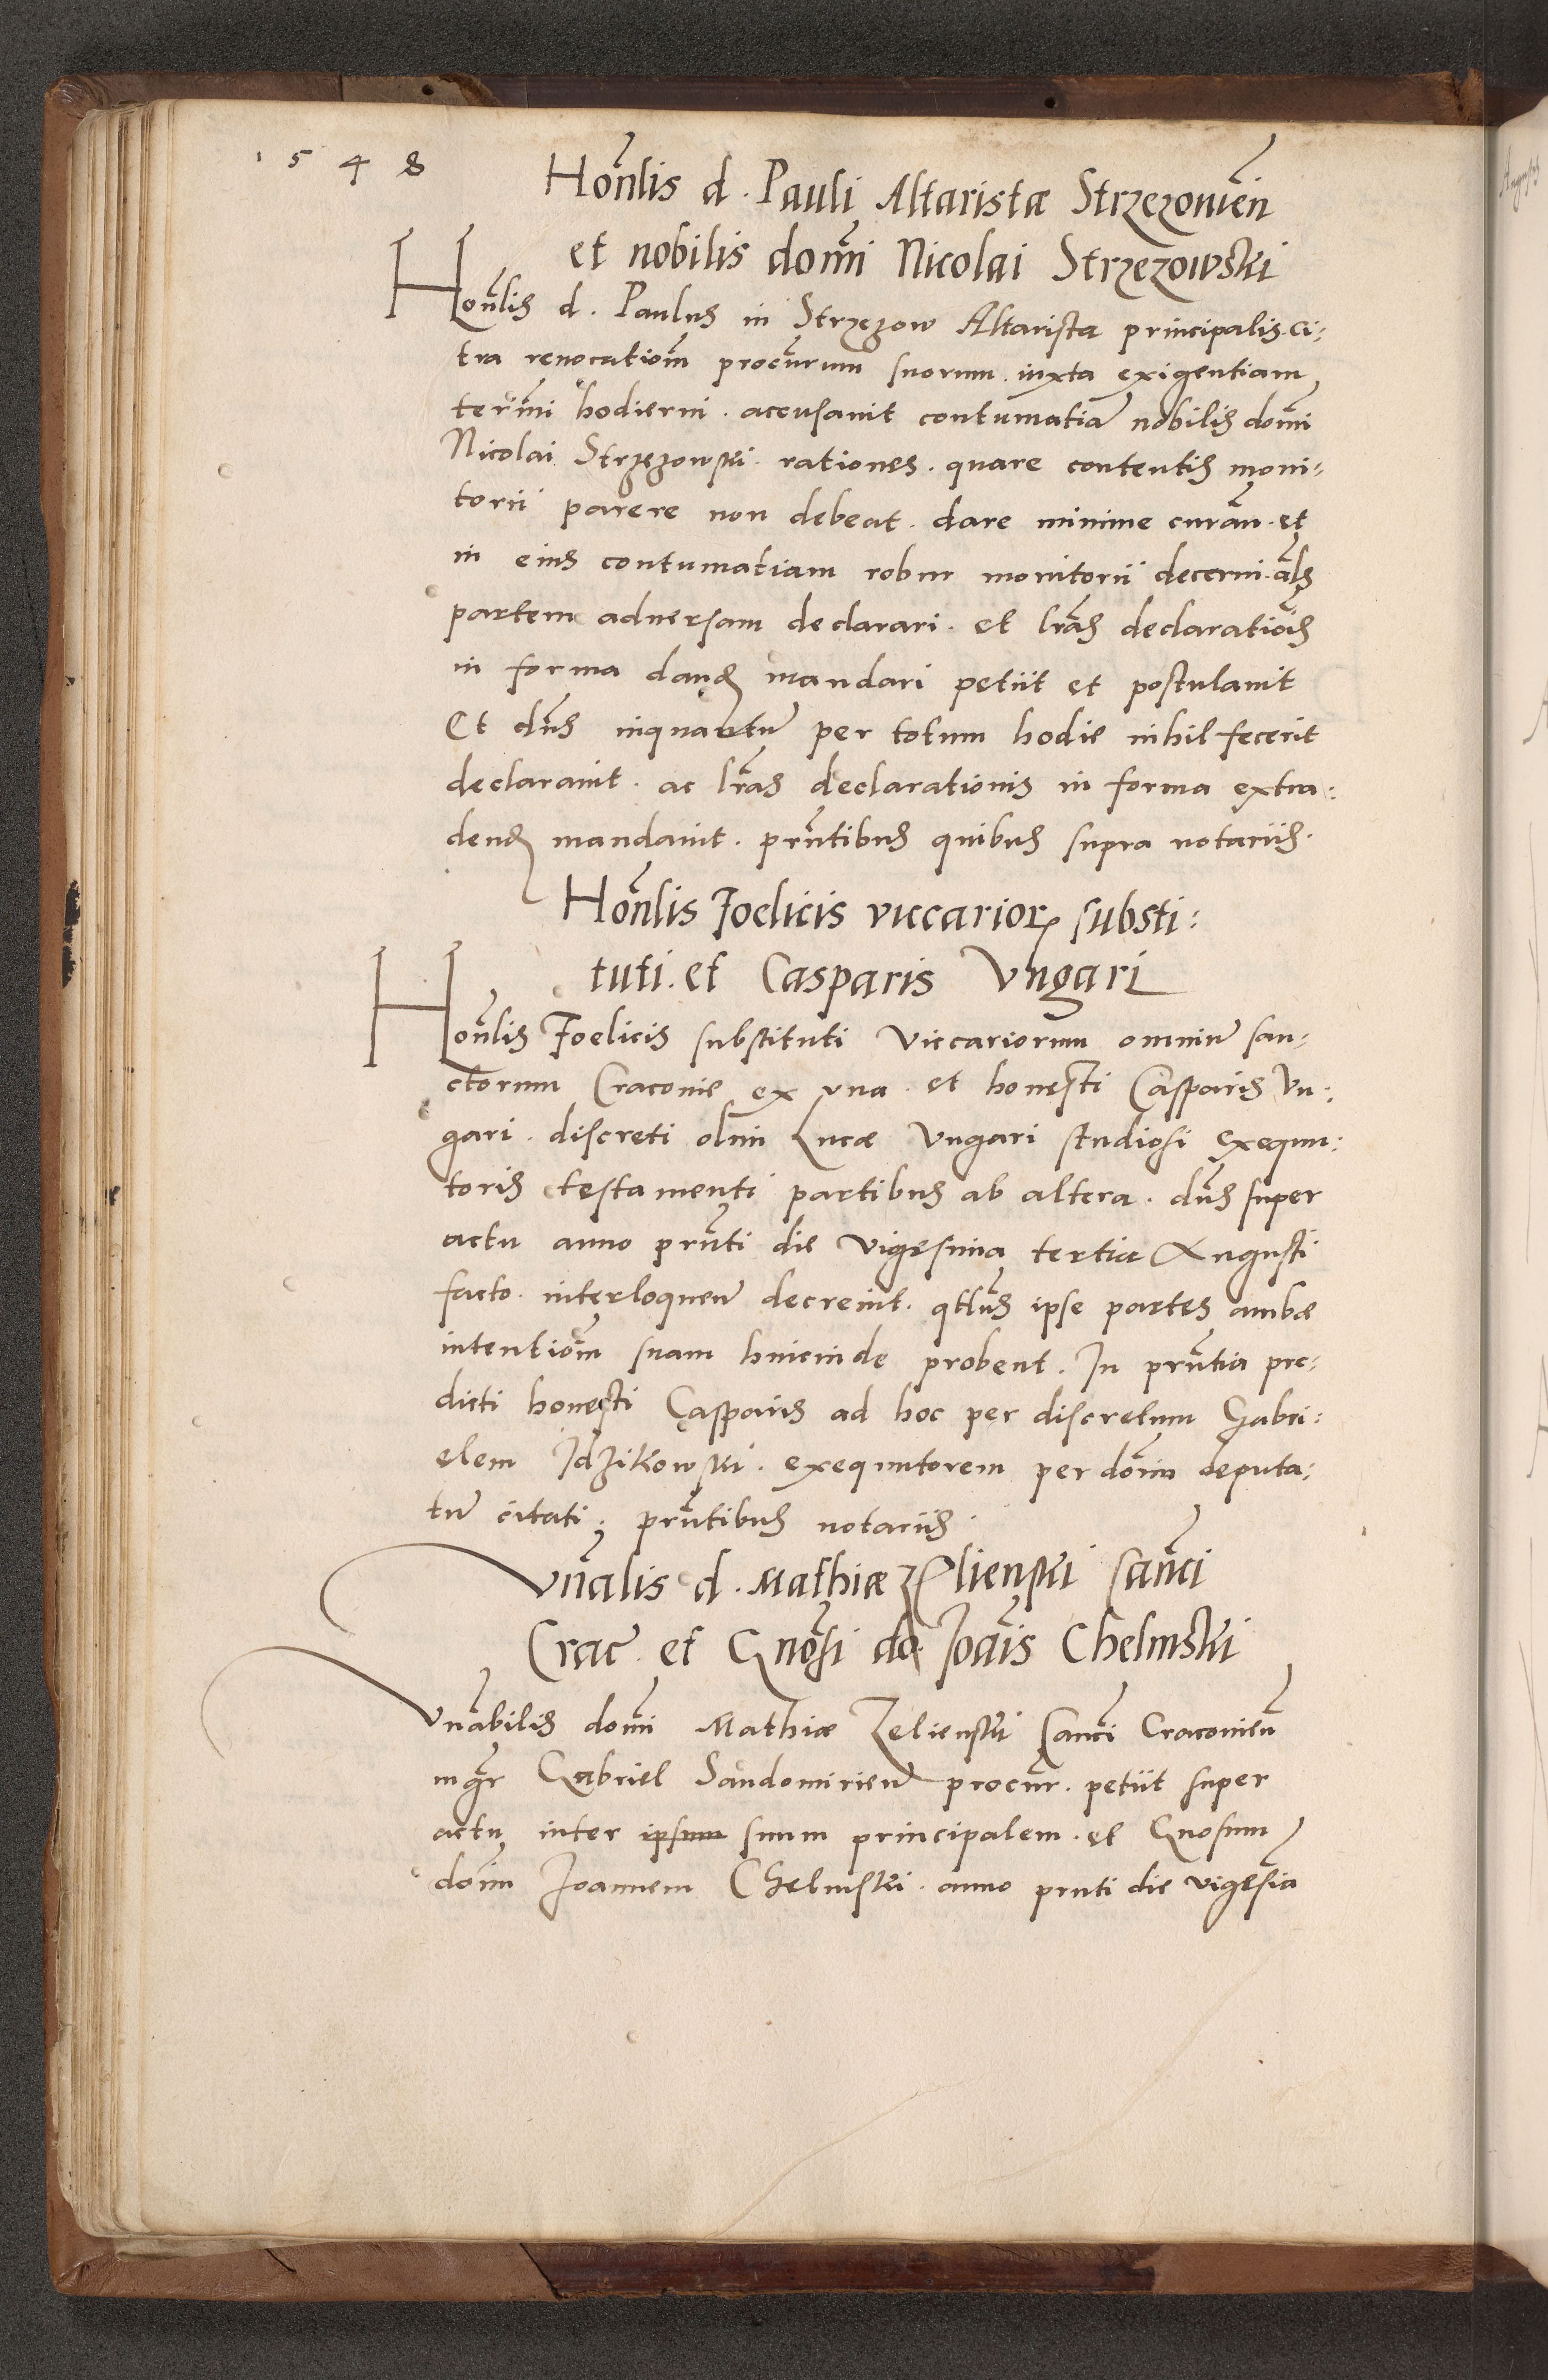 1548
Honlis d. Pauli Altaristæ Strzezowien
et nobilis domi Nicolai Strzezowski
Honlis d. Paulus in Strzezow Altarista principalis. ci:
tra reuocationm procurum suorum. iuxta exigentiam
termi hodierni. accusauit contumatia nobilis domi
Nicolai Strzezowski. rationes. quare contentis moni-
torii parere non debeat. dare minime curan. et
in eius contumatiam robur monitorii decerni. als
partem aduersam declarari. et lras declarationis
in forma dand mandari petiit et postulauit
Et dns inquantu per totum hodie nihil fecerit
declarauit. ac lras declarationis in forma extra:
dend mandauit. pruntibus quibus supra notariis.
Honlis Foelicis viccarior substi:
tuti. et Casparis Vngari
Honlis Foelicis substituti Viccariorum omniu san-
ctorum Cracouie ex vna. et honesti Casparis Vn:
gari. discreti olim Lucæ Vngari studiosi exequu:
toris testamenti partibus ab altera. dns super
actu anno prnti die vigesima tertia Augusti
facto. interloquen decreuit. qtus ipse partes ambæ
intentiom suam hincinde probent. In prntia pre-
dicti honesti Casparis ad hoc per discretum Gabri:
elem Idzikowski. exequutorem per domin deputa:
tu citati; prntibus notariis.
Vnalis d. Mathiæ Zelienski canci
Crac. et Gnosi do Joais Chelmski
Vnabilis domi Mathiæ Zelienski Canci Cracouien
mgr Gabriel Sandomirien procur. petiit super
actu inter ipsum suum principalem. et Gnosum
dom Joannem Chelmski. anno prnti die vigesia